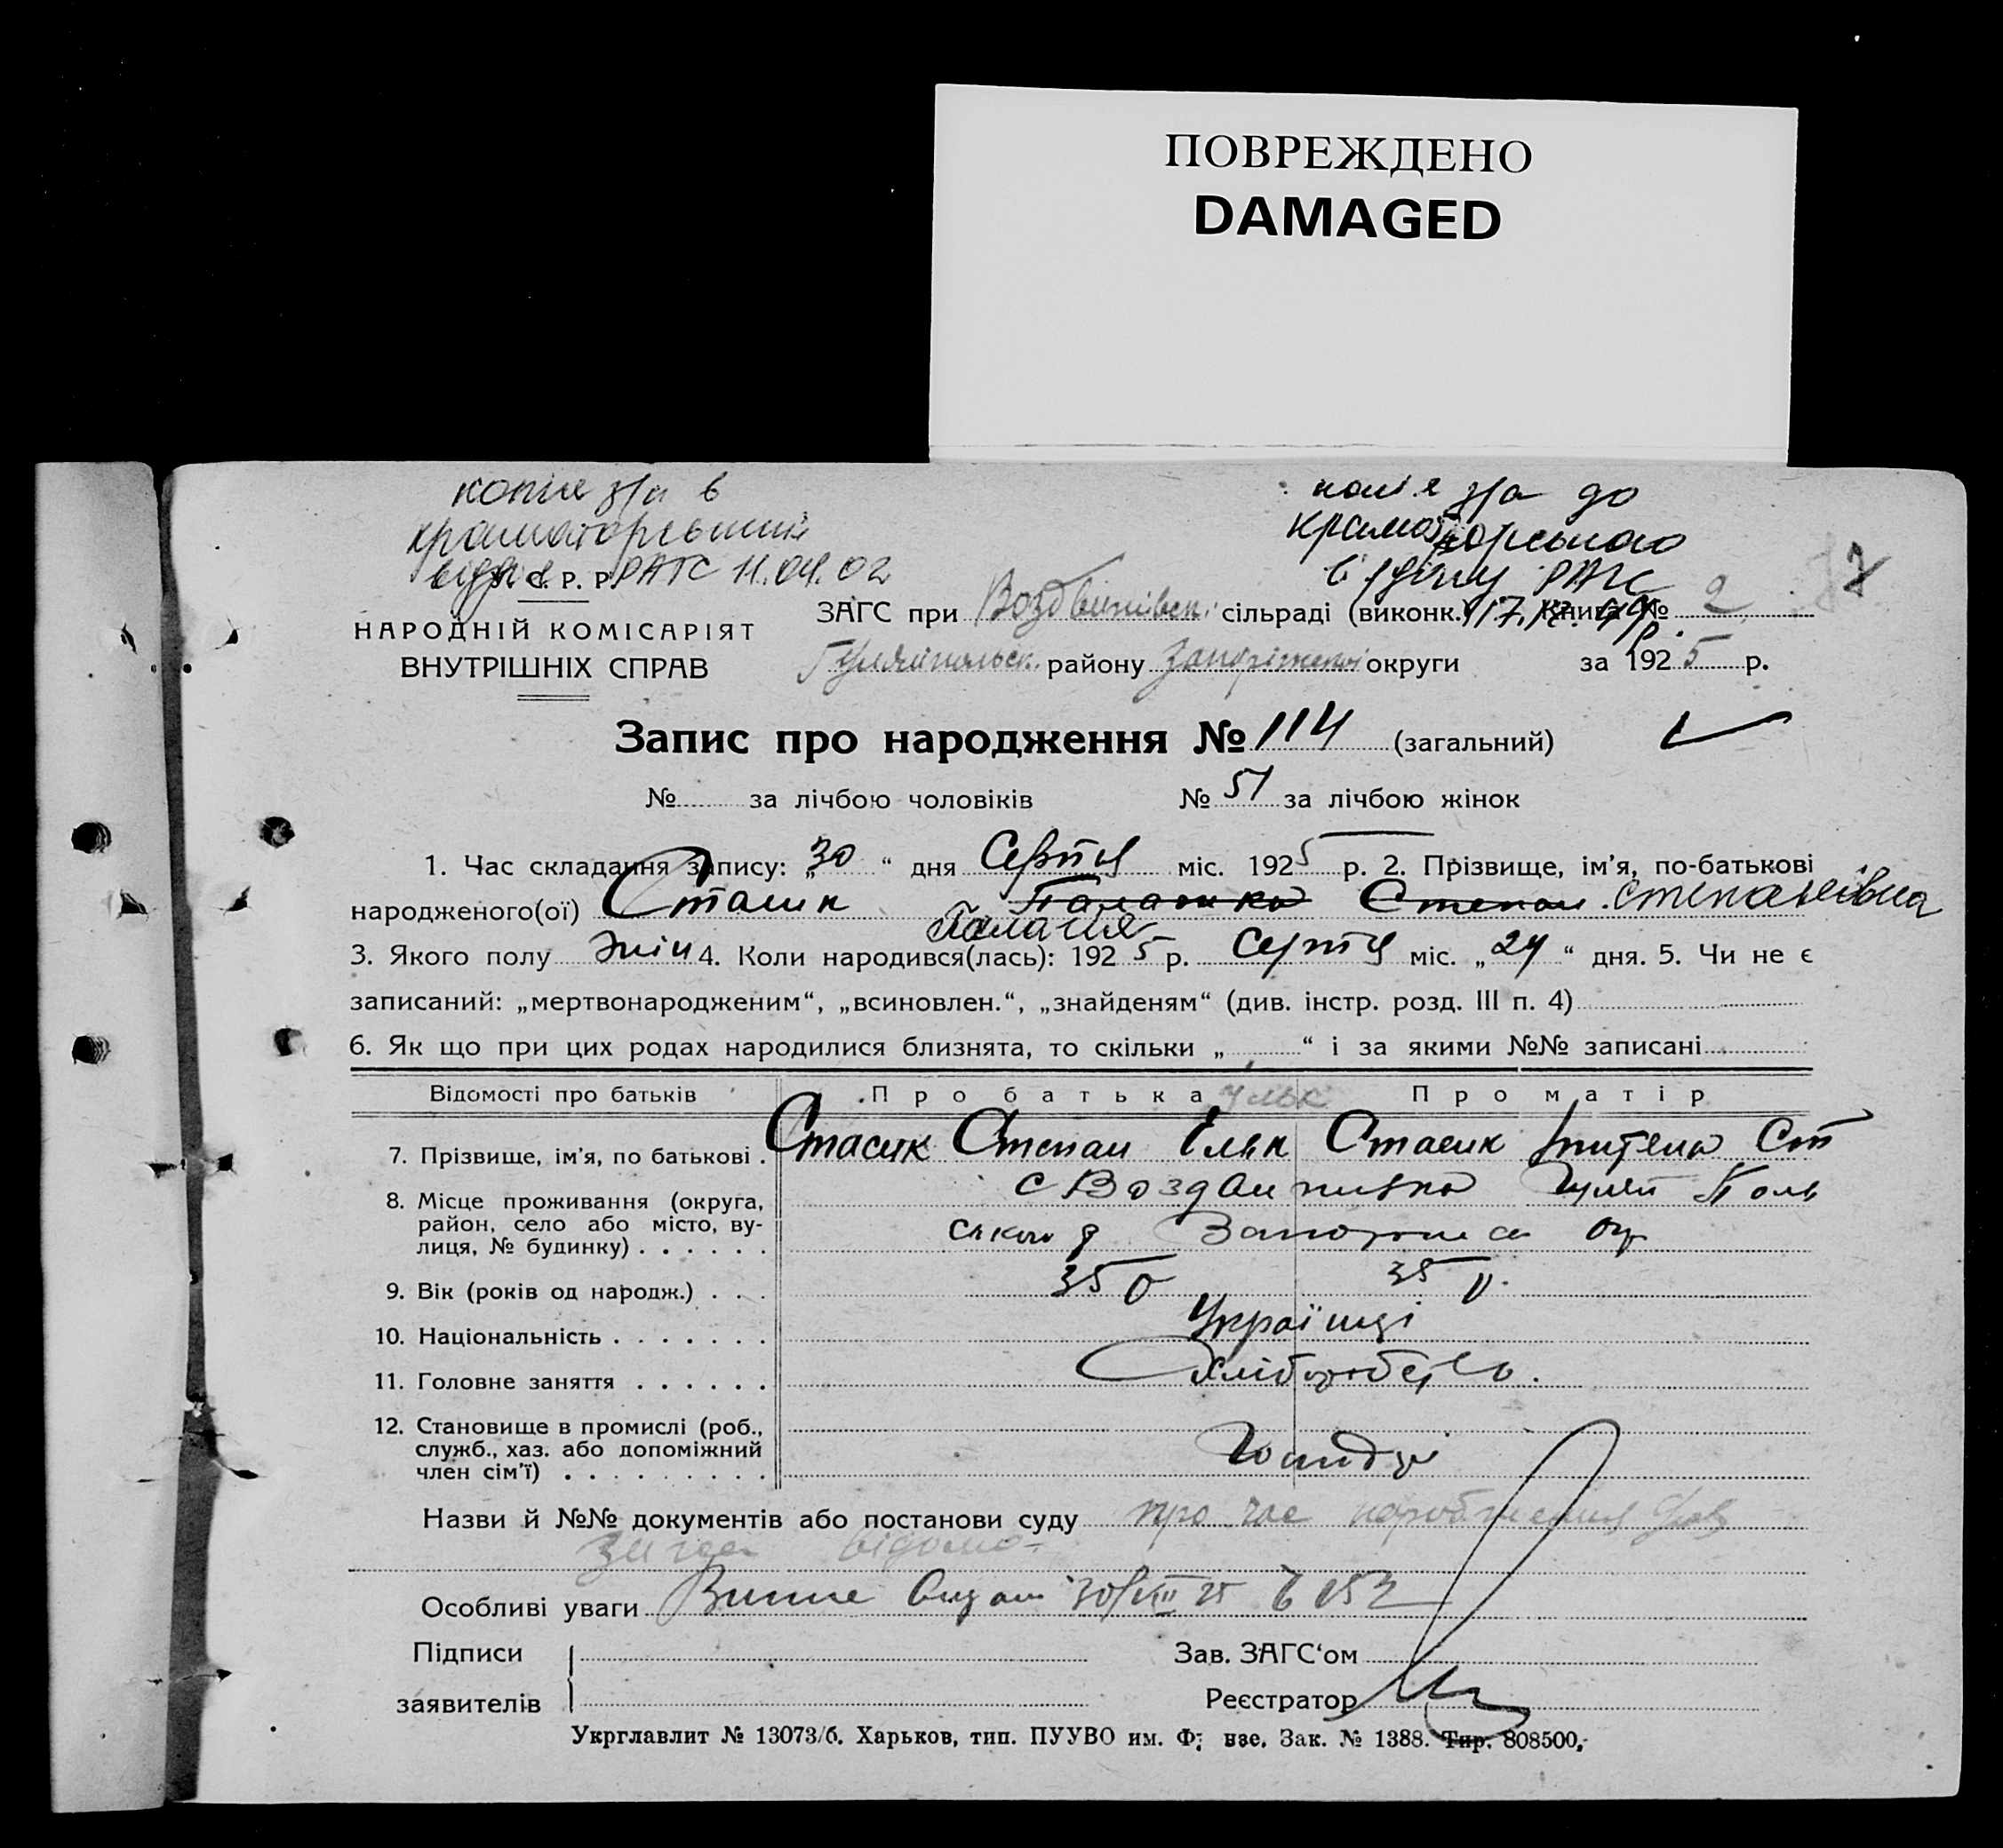 ПОВРЕЖДЕНО
DAMAGED
копія з/а в
краматорський
відділ РАГС 11.04.02
копія з/а до
Краматорського
відділу РАГС
17.12.99р.
С. Р. Р.
НАРОДНІЙ КОМІСАРІЯТ
ВНУТРІШНІХ СПРАВ
ЗАГС при Воздвиживск. сільраді (виконк.) Книга № 2
Гуляйпольск. району Запоріжської округи за 1925 р.
Запис про народження № 114 (загальний)
№ за лічбою чоловіків № 51 за лічбою жінок
1. Час складання запису: „30“ дня Серпня міс. 1925 р. 2. Прізвище, ім'я, по-батькові
народженого(ої) Стасик Степан Степанівна
Палагія
3. Якого полу жін 4. Коли народився(лась): 1925 р. Серпня міс. „24“ дня. 5. Чи не є
записаний: „мертвонародженим“, „всиновлен.“, „знайденям“ (див. інстр. розд. III п. 4)
6. Як що при цих родах народилися близнята, то скільки „ “ і за якими №№ записані
Відомості про батьків Про батька Про матір
7. Прізвище, ім'я, по батькові . Стасик Степан Стасик Ст
8. Місце проживання (округа, с Воздвиживка Гуляй Поль
район, село або місто, ву-
лиця, № будинку) . . . . . . ського р Запорижса окр
9. Вік (років од народж.) . . . 35 р 35 р.
10. Національність . . . . . . . Українці
11. Головне заняття . . . . . . Хліборобство.
12. Становище в промислі (роб.,
служб., хаз. або допоміжний
член сім'ї) . . . . . . . . .
Назви й №№ документів або постанови суду про час народження
відомо
Особливі уваги Випис видан 30/VIII 25
Підписи Зав. ЗАГС'ом
заявителів Реєстратор
Укрглавлит № 13073/б. Харьков, тип. ПУУВО им. Ф. Зак. № 1388. Тир. 808500.